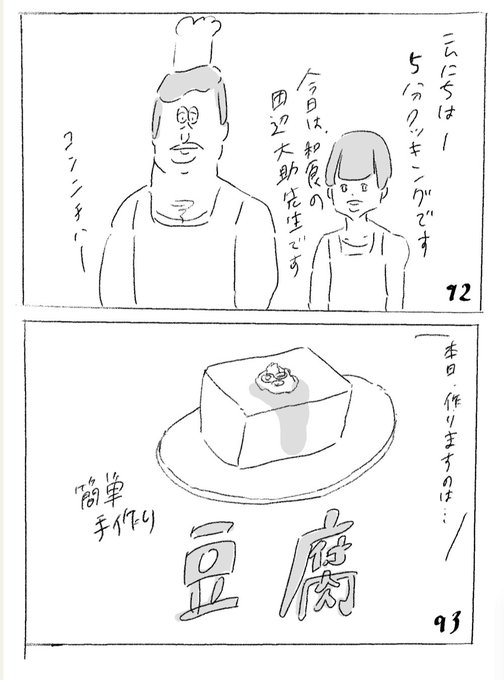 こんにちはー
5分クッキングです
今日は、和食の
田辺大助先生です
コンンチハー
92
本日、作りますのは…
簡単
手作り
豆腐
93